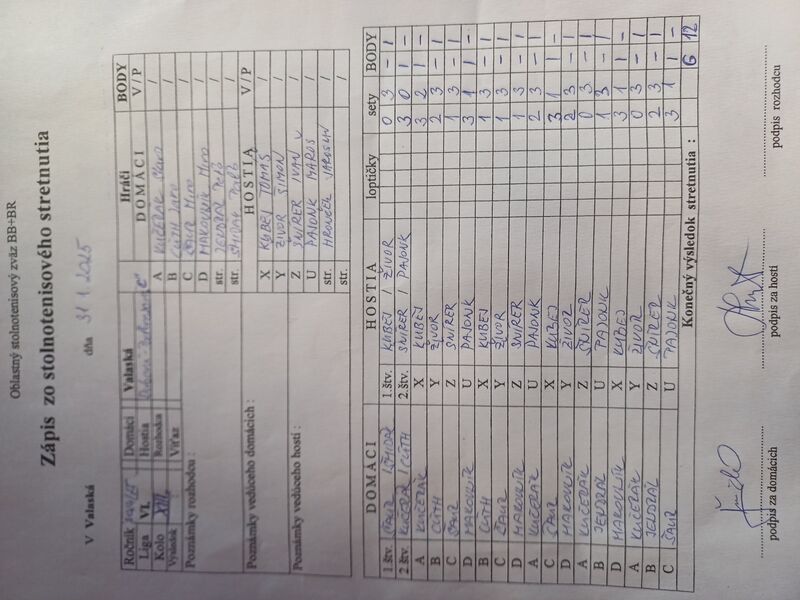 Oblastný stolnotenisový zväz BB+BR
Zápis zo stolnotenisového stretnutia
V Valaská dňa 31 1. 2025
Ročník Domáci Valaská
Liga VI. Hostia
Kolo XIII. Rozhodca
Výsledok Víťaz
Poznámky rozhodcu :
Poznámky vedúceho domácich :
Poznámky vedúceho hostí :
Hráči BODY
DOMÁCI V / P
A KUČERÁK /
B CÚTH JARO /
C SAUR MIRO /
D MAKOVNÍK MIRO /
str. JENDRÁL /
str. /
HOSTIA V / P
X KUBEJ TOMÁŠ /
Y ŽIVOR ŠIMON /
Z ŠNÍRER IVAN /
U PAJONK MAROŠ /
str. HRONČEK JAROSLAV /
str. /
DOMÁCI HOSTIA loptičky sety BODY
1.štv. SAUR 1.štv. KUBEJ / ŽIVOR 0 3 - 1
2.štv. KUČERÁK / CÚTH 2.štv. ŠNÍRER / PAJONK 3 0 1 -
A KUČERÁK X KUBEJ 3 2 1 -
B CÚTH Y ŽIVOR 2 3 - 1
C SAUR Z ŠNÍRER 1 3 - 1
D MAKOVNÍK U PAJONK 3 1 1 -
B CÚTH X KUBEJ 1 3 - 1
C SAUR Y ŽIVOR 1 3 - 1
D MAKOVNÍK Z ŠNÍRER 1 3 - 1
A KUČERÁK U PAJONK 2 3 - 1
C SAUR X KUBEJ 3 1 1 -
D MAKOVNÍK Y ŽIVOR 2 3 - 1
A KUČERÁK Z ŠNÍRER 0 3 - 1
B JENDRÁL U PAJONK 1 3 - 1
D MAKOVNÍK X KUBEJ 3 1 1 -
A KUČERÁK Y ŽIVOR 0 3 - 1
B JENDRÁL Z ŠNÍRER 2 3 - 1
C SAUR U PAJONK 3 1 1 -
Konečný výsledok stretnutia : 6 12
podpis za domácich podpis za hostí podpis rozhodcu